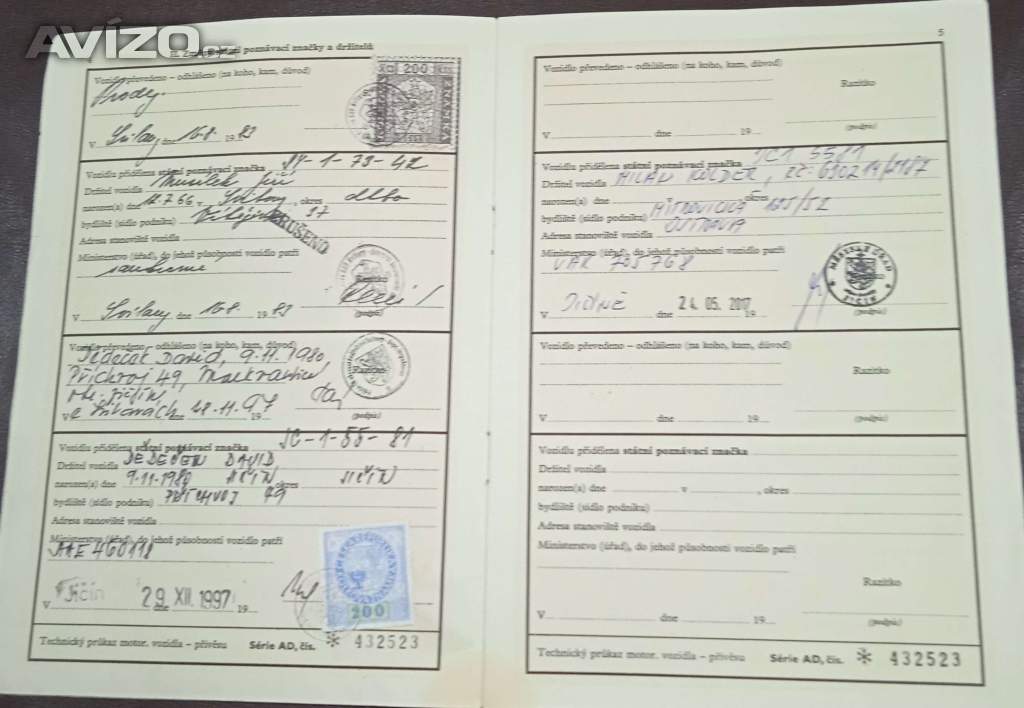 AVÍZO
poznávací značky a držitelů
Vozidlo převedeno – odhlášeno (na koho, kam, důvod)
Prodej.
Kčs 200 Kčs
V Svitavy dne 16.8. 1983
Vozidlu přidělena státní poznávací značka SY-1-73-42
Držitel vozidla Jiří
narozen(a) dne 12.7.66 v Svitavy, okres dtto
bydliště (sídlo podniku) 37
ZRUŠENO
Adresa stanoviště vozidla
Ministerstvo (úřad), do jehož působnosti vozidlo patří
soukromé
Razítko
V Svitavy dne 16.8. 1983
(podpis)
Vozidlo převedeno – odhlášeno (na koho, kam, důvod)
David, 9.11.1980,
49,
Razítko
V Svitavách 28.11.97 19
(podpis)
Vozidlu přidělena státní poznávací značka JC-1-55-81
Držitel vozidla DAVID
narozen(a) dne 9.11.1980 JIČÍN okres JIČÍN
bydliště (sídlo podniku) 49
Adresa stanoviště vozidla
Ministerstvo (úřad), do jehož působnosti vozidlo patří
460118
V Jičín dne 29. XII. 1997 19
200
Technický průkaz motor. vozidla – přívěsu Série AD, čís. * 432523
5
Vozidlo převedeno – odhlášeno (na koho, kam, důvod)
Razítko
V dne 19
(podpis)
Vozidlu přidělena státní poznávací značka JC1 5581
Držitel vozidla MILAN KOLDER, RČ:
narozen(a) dne okres
bydliště (sídlo podniku) MITROVICKÁ 195/52
Adresa stanoviště vozidla OSTRAVA
Ministerstvo (úřad), do jehož působnosti vozidlo patří
UAK 705768
MĚSTSKÝ ÚŘAD
JIČÍN
V JIČÍNĚ dne 24.05.2017 19
(podpis)
Vozidlo převedeno – odhlášeno (na koho, kam, důvod)
Razítko
V dne 19
(podpis)
Vozidlu přidělena státní poznávací značka
Držitel vozidla
narozen(a) dne v , okres
bydliště (sídlo podniku)
Adresa stanoviště vozidla
Ministerstvo (úřad), do jehož působnosti vozidlo patří
Razítko
V dne 19
(podpis)
Technický průkaz motor. vozidla – přívěsu Série AD, čís. * 432523